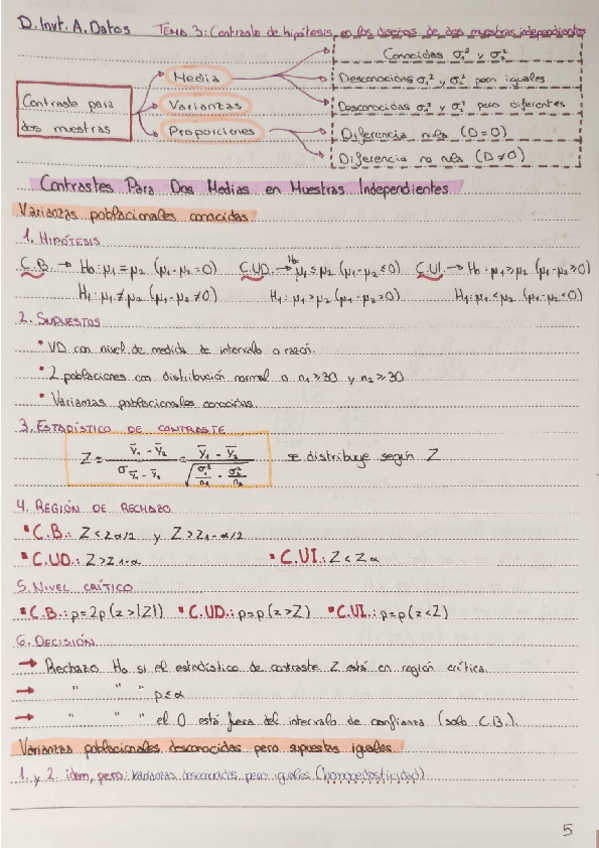 D. Invt. A. Datos    TEMA 3: Contraste de hipótesis, en los diseños de dos muestras independientes
Conocidas σ₁² y σ₂²
Media    Desconocidas σ₁² y σ₂² pero iguales
Contraste para    Varianzas    Desconocidas σ₁² y σ₂² pero diferentes
dos muestras    Proporciones    Diferencia nula (D=0)
Diferencia no nula (D≠0)
Contrastes Para Dos Medias en Muestras Independientes
Varianzas poblacionales conocidas
1. HIPÓTESIS
C.B. → H₀: μ₁ = μ₂ (μ₁-μ₂=0)    C.UD. → H₀: μ₁ ≤ μ₂ (μ₁-μ₂ ≤ 0)    C.UI. → H₀: μ₁ ≥ μ₂ (μ₁-μ₂ ≥ 0)
H₁: μ₁ ≠ μ₂ (μ₁-μ₂ ≠ 0)    H₁: μ₁ > μ₂ (μ₁-μ₂ > 0)    H₁: μ₁ < μ₂ (μ₁-μ₂ < 0)
2. SUPUESTOS
• VD con nivel de medida de intervalo o razón.
• 2 poblaciones con distribución normal o n₁ ≥ 30 y n₂ ≥ 30
• Varianzas poblacionales conocidas.
3. ESTADÍSTICO DE CONTRASTE
Z = (Ȳ₁ - Ȳ₂) / σ Ȳ₁ - Ȳ₂ = (Ȳ₁ - Ȳ₂) / √(σ₁²/n₁ - σ₂²/n₂)    se distribuye según Z
4. REGIÓN DE RECHAZO
• C.B.: Z < Zα/2 y Z > Z1-α/2
• C.UD.: Z > Z1-α    • C.UI.: Z < Zα
5. NIVEL CRÍTICO
• C.B.: p = 2p(z > |Z|)    • C.UD.: p = p(z > Z)    • C.UI.: p = p(z < Z)
6. DECISIÓN
→ Rechazo H₀ si el estadístico de contraste Z está en región crítica.
→ " " " p ≤ α
→ " " " el 0 está fuera del intervalo de confianza (solo C.B.).
Varianzas poblacionales desconocidas pero supuestas iguales
1 y 2 idem, pero: varianzas desconocidas pero iguales (homocedasticidad)
5